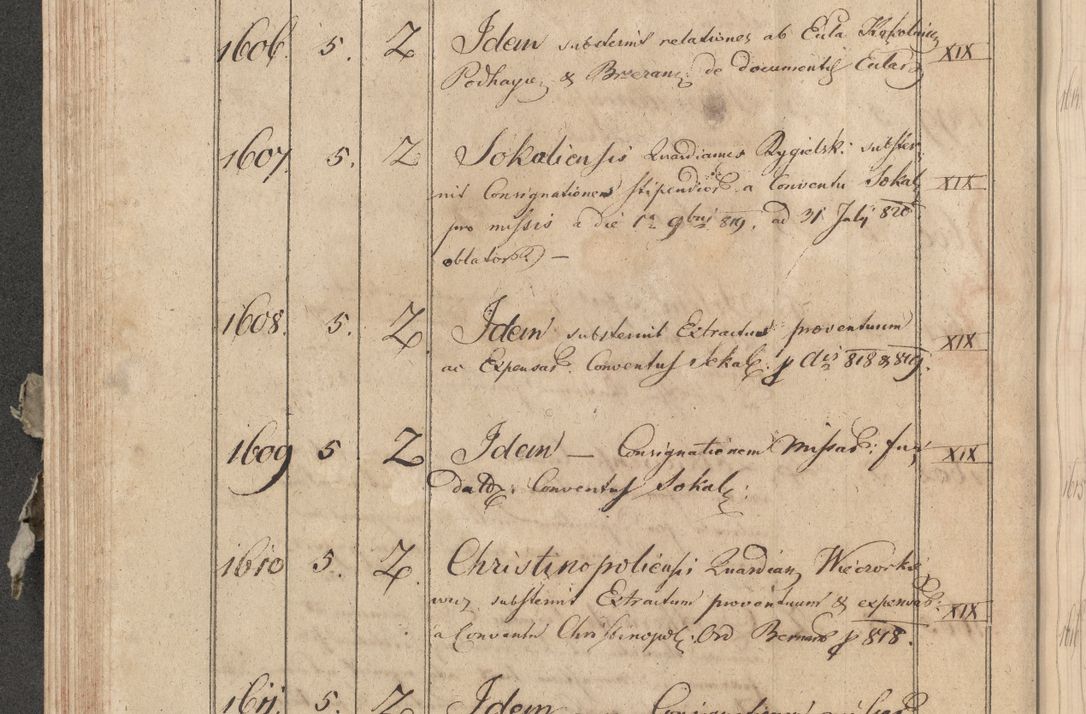 1606. 5. Z Idem substernit relationes ab Eccla
Podhayc. & Brzezan. de documentis Eccla XIX
1607. 5. Z Sokaliensis Quardianus Rygielski subster-
nit Consignationem stipendior. a Conventu Sokal. XIX
pro missis a die 1a 9bris 819. ad 31 July 820
oblator. —
1608. 5. Z. Idem substernit Extractum proventuum
ac Expensar. Conventus Sokal. p 818 & 819. XIX
1609 5. Z Idem — Consignationem Missar. fun-
datar. Conventus Sokal: XIX
1610 5. Z. Christinopoliensis Quardian Wieczorkie
wicz substernit Extractum proventuum & expensar. XIX
a Conventu Christinopol. Ord Bernard p 818.
1611. 5. Z Idem